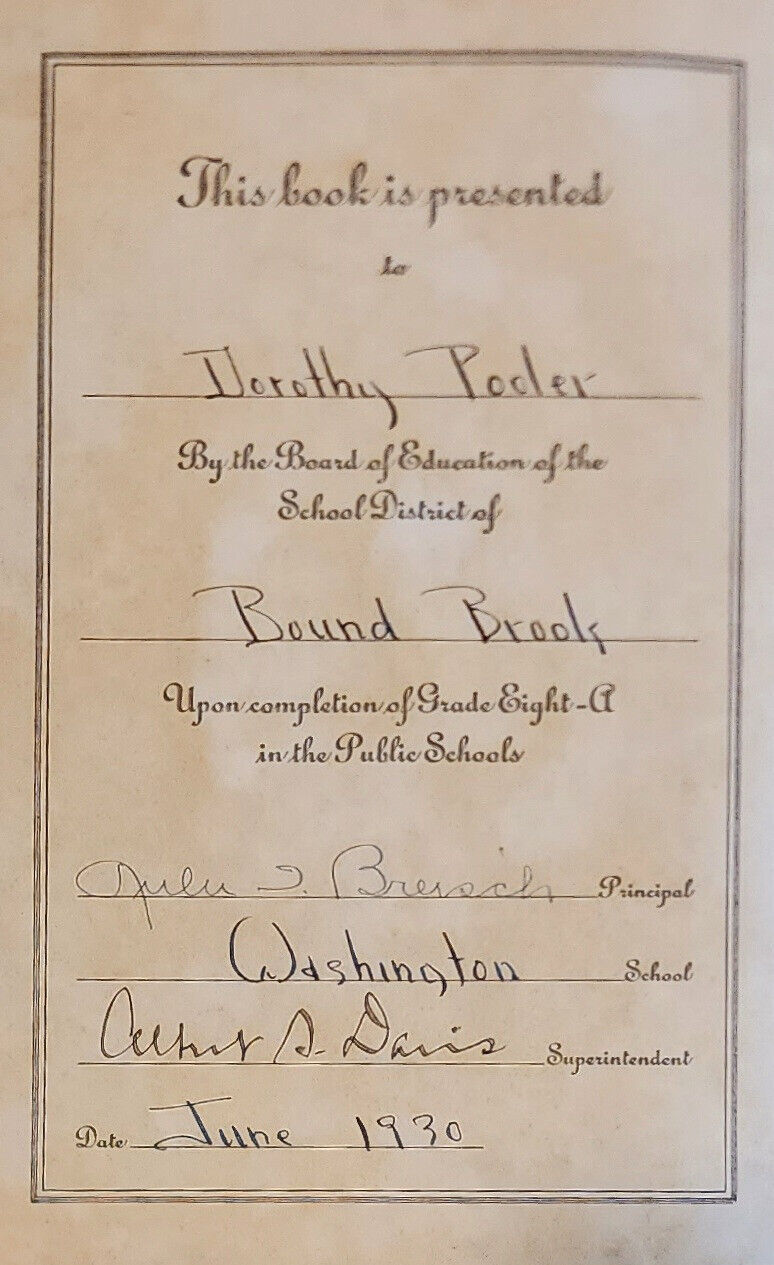 This book is presented
to
Dorothy Pooler
By the Board of Education of the
School District of
Bound Brook
Upon completion of Grade Eight-A
in the Public Schools
Principal
Washington School
Albert S. Davis Superintendent
Date June 1930